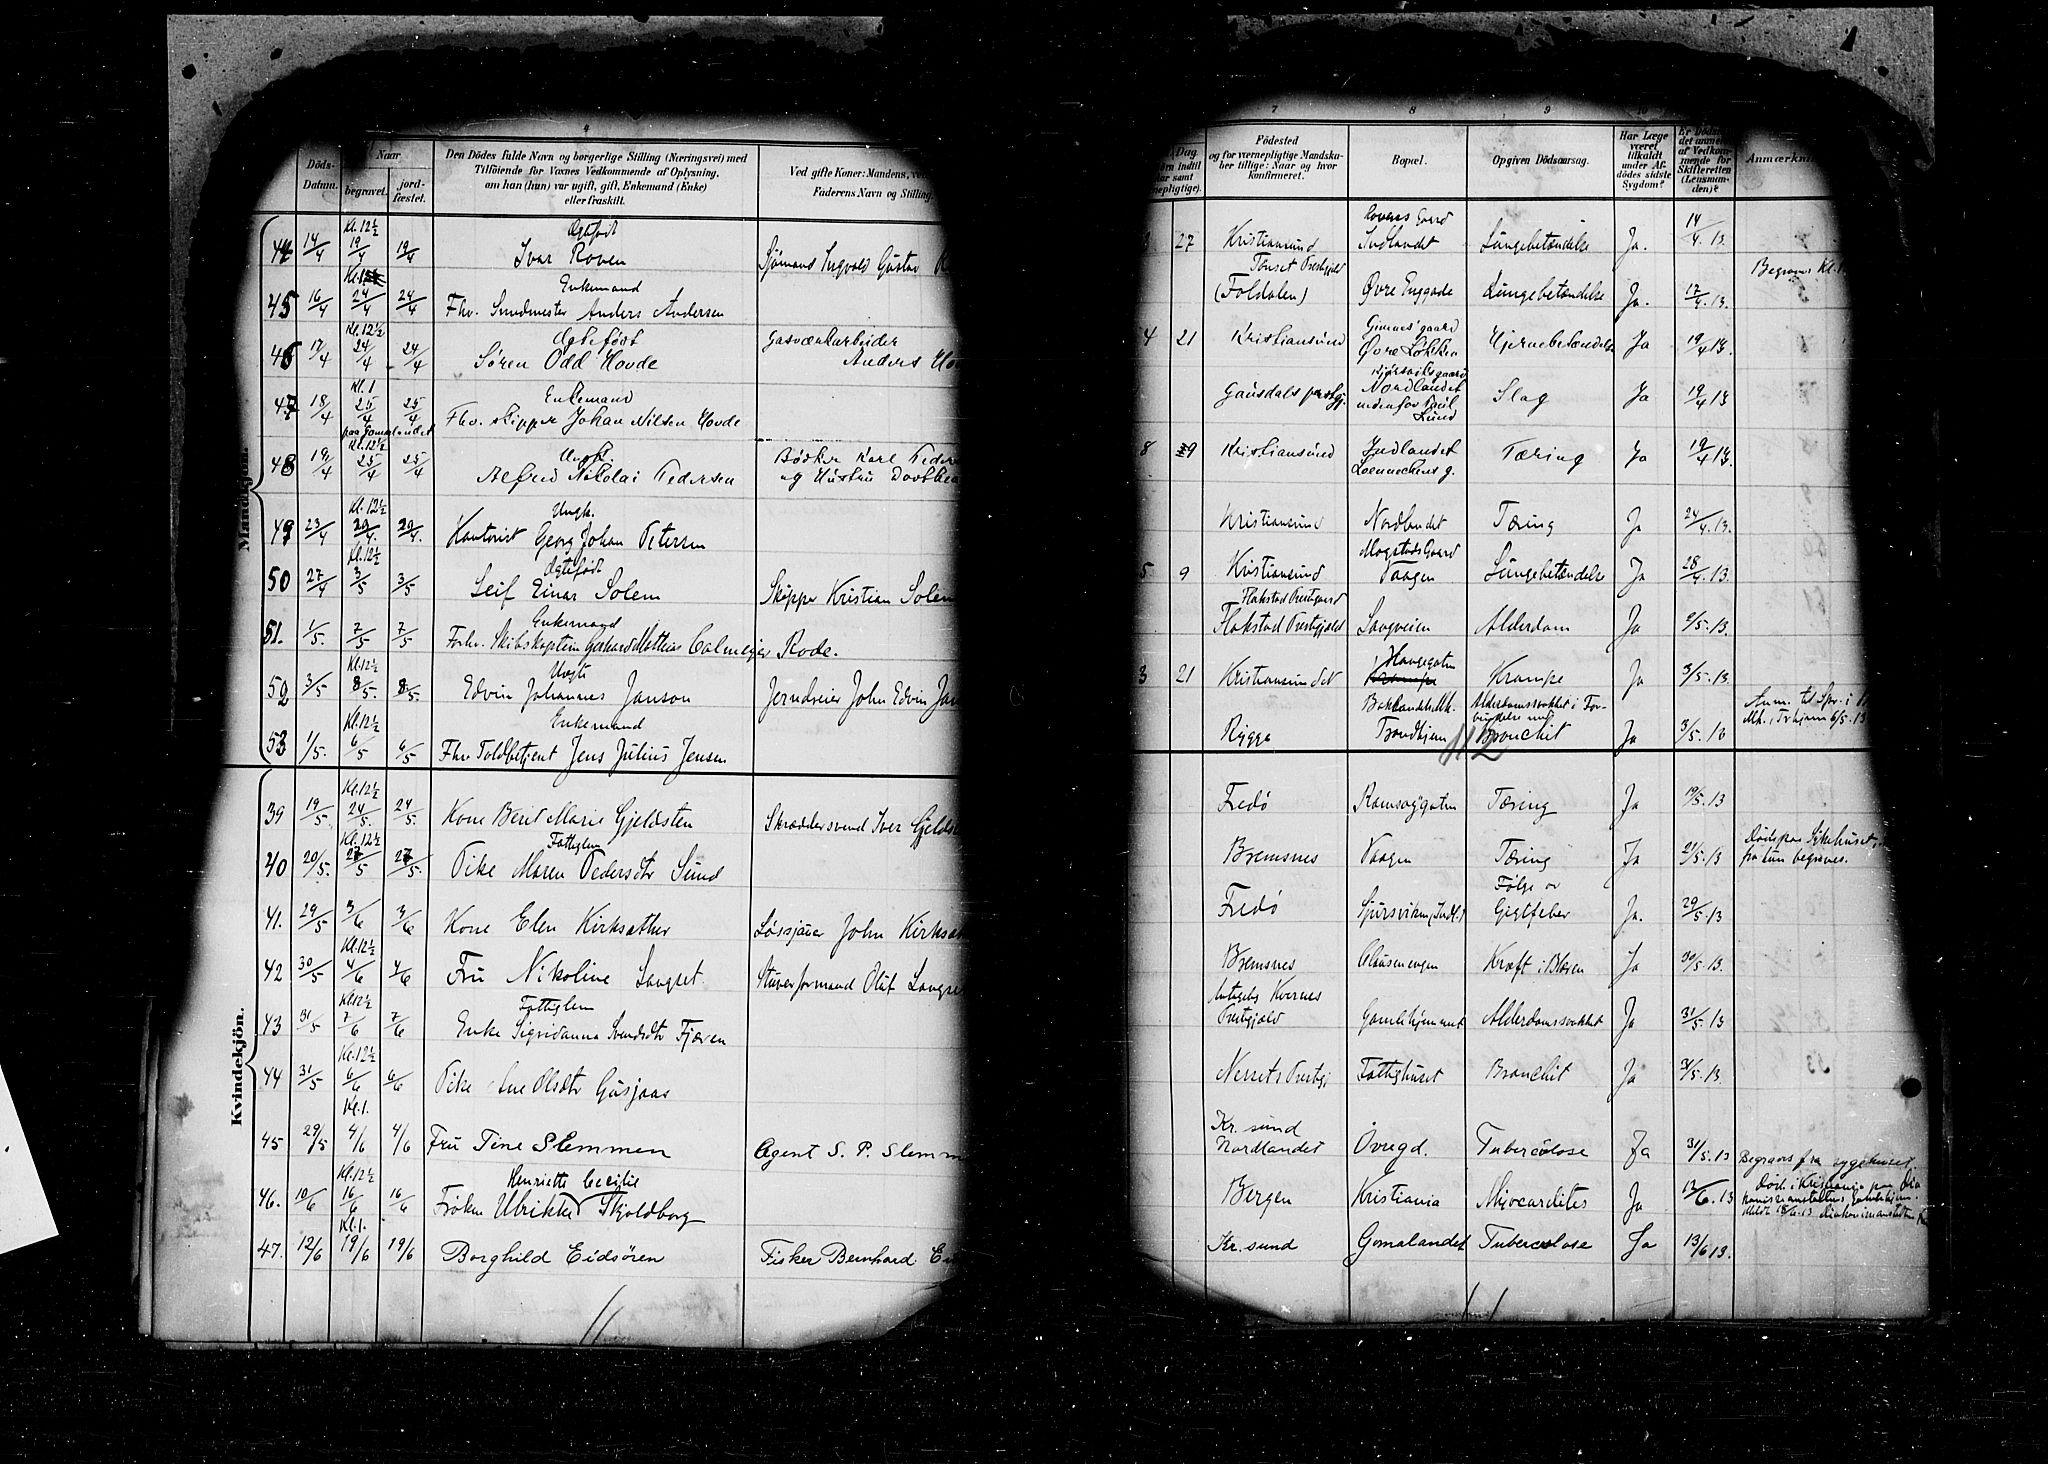 4
Döds-
Datum.
Naar
begravet.
jord-
fæstet.
Den Dödes fulde Navn og borgerlige Stilling (Næringsvei) med
Tilföiende for Voxnes Vedkommende af Oplysning,
om han (hun) var ugift, gift, Enkemand (Enke)
eller fraskilt.
Ved gifte Koner: Mandens,
Faderens Navn og Stilling.
Mandkjön.
Kl. 12½
Ægtefödt
44 14/4 19/4 19/4 Ivar Roven Sjömand Ingvald Gustav
Enkemand
45 16/4 24/4 24/4 Fhv. Sundmester Anders Andersen
Kl. 12½ Ægtefödt Gasverkarbeider
46 17/4 24/4 24/4 Sören Odd Hovde Anders
Kl. 1 Enkemand
47 18/4 25/4 25/4 Fhv. skipper Johan Nilsen Hovde
paa Gomalandet
Kl. 12½ Ungk. Bödker Karl
48 19/4 25/4 25/4 Alfred Nikolai Pedersen og Hustru
Kl. 12½ Ungk.
49 23/4 29/4 29/4 Kontorist Georg Johan Petersen
Kl. 12½ Ægtefödt
50 27/4 3/5 3/5 Leif Einar Solem Skipper Kristian Solem
Enkemand
51. 1/5. 7/5 7/5 Forhv. Skibskaptein Gerhard Mathias Calmeyer Rode.
Kl. 12½ Ungk.
52 3/5 8/5. 8/5 Edvin Johannes Janson Jerndreier John Edvin
Kl. 12½ Enkemand
53 1/5. 6/5 6/5 Fhv. Toldbetjent Jens Julius Jensen
Kvindekjön.
Kl. 12½
39 19/5 24/5 24/5 Kone Berit Marie Gjeldsten Skræddersvend Iver
Kl. 12½ Fattiglem
40 20/5. 27/5 27/5. Pike Maren Pedersdtr Sund
41. 29/5 3/6 3/6 Kone Elen Kirksæther Løssjauer John
Kl. 12½
42 30/5 4/6 4/6 Fru Nikoline Langset. Stuverformand Oluf
Kl. 12½ Fattiglem
43 31/5 7/6 7/6 Enke Sigridanna Svendsdtr Fjæren
Kl. 12½
44 31/5 6/6 6/6 Pike Ane Olsdtr Gusjaas
Kl. 1.
45 29/5 4/6 4/6 Fru Tine Slemmen Agent S. P.
Kl. 12½ Henriette Cecilie
46. 10/6 16/6 16/6 Fröken Ulrikke Skjoldborg
Kl. 1.
47. 12/6 19/6 19/6 Borghild Eidsören Fisker Bernhard
7 8 9 10
Dag
Födested
og for værnepligtige Mandska-
ber tillige: Naar og hvor
konfirmeret.
Bopæl.
Opgiven Dödsaarsag.
Har Læge
været
tilkaldt
under Af-
dödes sidste
Sygdom?
Er Döds-
det anmel
af Vedkom-
mende for
Skifteretten
(Lensman-
den)?
Anmærkni
Rovens Gaard
27 Kristiansund Indlandet Lungebetændelse Ja. 14/4.13.
Tönset Prestgjeld Begraves Kl. 1
(Foldalen) Øvre Enggade Lungebetændelse Ja. 17/4.13.
4 21 Kristiansund Øvre Løkken Hjernebetændelse Ja 19/4 13.
Gausdals prstgj. Nordlandet Slag Ja 19/4 13
indenfor Paul
Lund
8 9 Kristiansund Indlandet Tæring Ja 19/4 13.
Loennechens g.
Kristiansund Nordlandet Tæring Ja 24/4.13.
5 9 Kristiansund Vaagen Lungebetændelse Ja 28/4.13.
Flakstad Prestgaard
Flakstad Prestgjeld Langveien Alderdom Ja 2/5.13.
Haugegaten
3 21 Kristiansund N Krampe Ja 3/5.13.
Baklandets Mh. Alderdomssvækket i For-
bindelse med
Rygge Trondhjem Bronchit Ja 3/5.13
Anm. til Spr. i
Mh. i Trhjem 6/5.13
112
Fredö Ramsøygaten Tæring Ja 19/5.13
Bremsnes Vaagen Tæring Ja 21/5.13
Död paa Sykehuset,
fra kun begraves.
Følge av
Fredö Sjursviken (Indl.) Gigtfeber Ja. 29/5.13
Bremsnes Clausenengen Kræft i Blæren Ja 30/5.13.
Antagelig Kvernes
Prestgjeld Gamlehjemmet Alderdomssvækket Ja 31/5.13
Nessets Prestgj Fattighuset Bronchit Ja 31/5.13.
Kr. sund
Nordlandet Övregd. Tuberculose Ja 31/5.13
Begraves fra sygehuset.
Bergen Kristiania Myocarditis Ja 12/6.13
Död i Kristiania paa Dia
Kr. sund Gomalandet Tuberculose Ja 13/6 13.